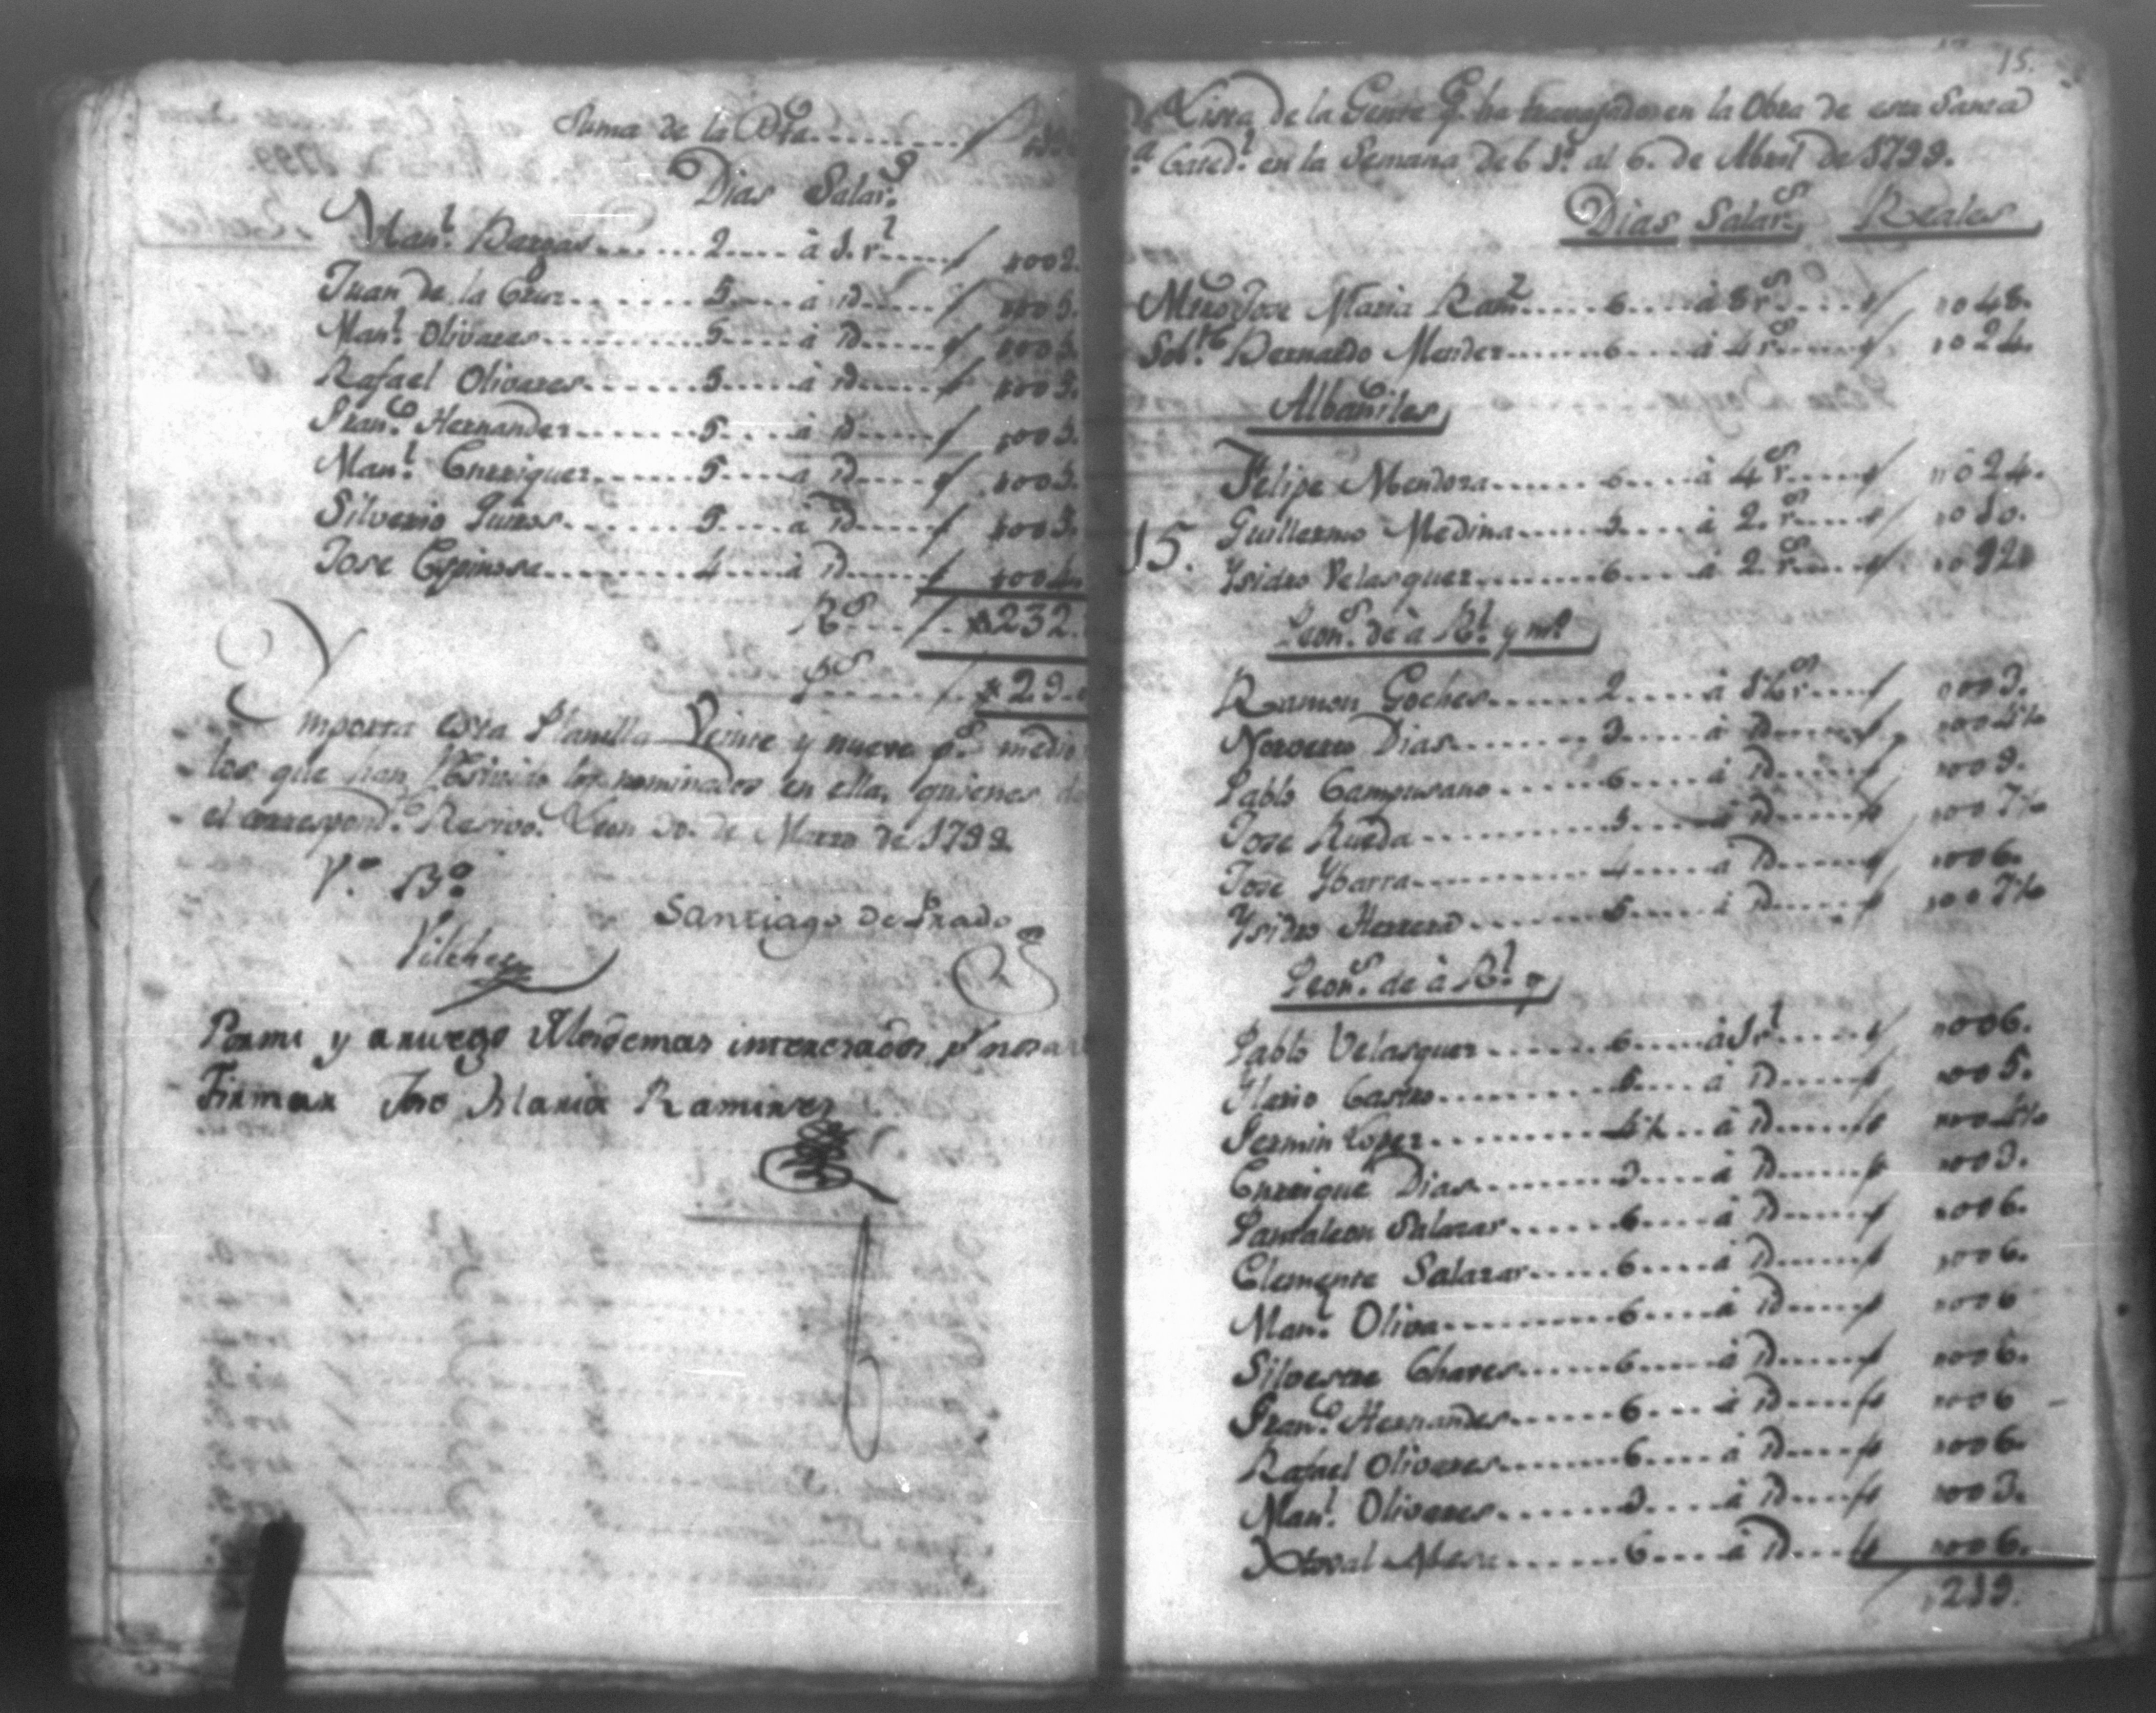 Suma de la Bta........
Dias Salar.s
Man.l Bargas...... 2.... à 1. r.l..... // ,,002.
Juan de la Cruz....... 5.... à id..... // ,,005.
Man.l Olivares........ 5.... à id..... // ,,005.
Rafael Olivares....... 5.... à id..... // ,,005.
Fran.co Hernandez....... 5.... à id..... // ,,005.
Man.l Enrriquez....... 5.... à id..... // ,,005.
Silverio Quiros....... 5.... à id..... // ,,005.
Jose Espinosa......... 4.... à id..... // ,,004.
R.s.... // ..232.
p.s.... // ..29..
Ymporta esta Planilla Veinte y nueve p.s medio
los que han Resivido los nominados en ella, quienes
el correspond.te Resivo. Leon 30. de Marzo de 1799.
V.o B.o
Santiago de Prado
Vilches
Pormi y aruego delosdemas interesados p.r nosa
Firmar Jose Maria Ramires
15.
Lista de la Gente q.e ha travajado en la Obra de esta Santa
Cated.l en la Semana de 1.o al 6. de Abril de 1799.
Dias Salar.s Reales
Mtro Jose Maria Ram.z..... 6.... à 8 r.s..... // ,,048.
Sob.te Bernardo Mendez...... 6.... à 4 r.s..... // ,,024.
Albañiles
Felipe Mendoza...... 6.... à 4 r.s..... // ,,024.
15. Guillermo Medina..... 5.... à 2. r.s..... // ,,010.
Ysidro Velasquez....... 6.... à 2. r.s..... // ,,012.
Peon.s de à R.l y m.o
Ramon Goches...... 2.... à 1½ r.s.... // ,,003.
Dias....... 3.... à id..... // ,,004½
Pablo Campusano ...... 6.... à id..... // ,,009.
Jose Rueda ......... 5.... à id..... // ,,007½
Jose Ybarra......... 4.... à id..... // ,,006.
Ysidro Herrera ....... 5.... à id..... // ,,007½
Peon.s de à R.l
Pablo Velasquez ...... 6.... à 1 r.l..... // ,,006.
Ylario Castro........ 5.... à id..... // ,,005.
Fermin Lopez......... 4½... à id..... // ,,004½
Enrrique Dias........ 3.... à id..... // ,,003.
Pantaleon Salazar..... 6.... à id..... // ,,006.
Clemente Salazar..... 6.... à id..... // ,,006.
Man.l Oliva......... 6.... à id..... // ,,006
Silvestre Chaves...... 6.... à id..... // ,,006.
Fran.co Hernandes..... 6.... à id..... // ,,006
Rafael Olivares....... 6.... à id..... // ,,006.
Man.l Olivares....... 3.... à id..... // ,,003.
Xtoval Mesa....... 6.... à id..... // ,,006.
,219.